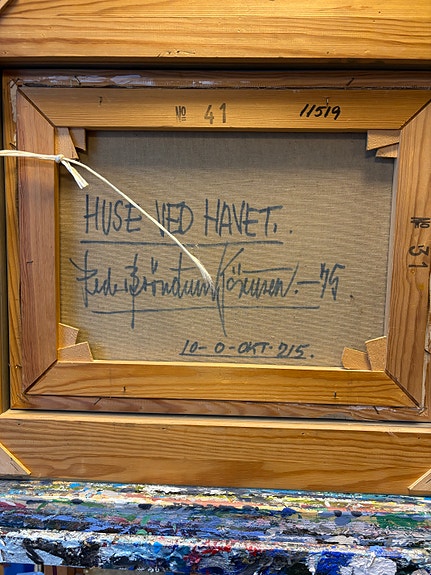 No 41 11519
HUSE VED HAVET.
Peder Bröndum Sörensen. -75
10-0-OKT-215.